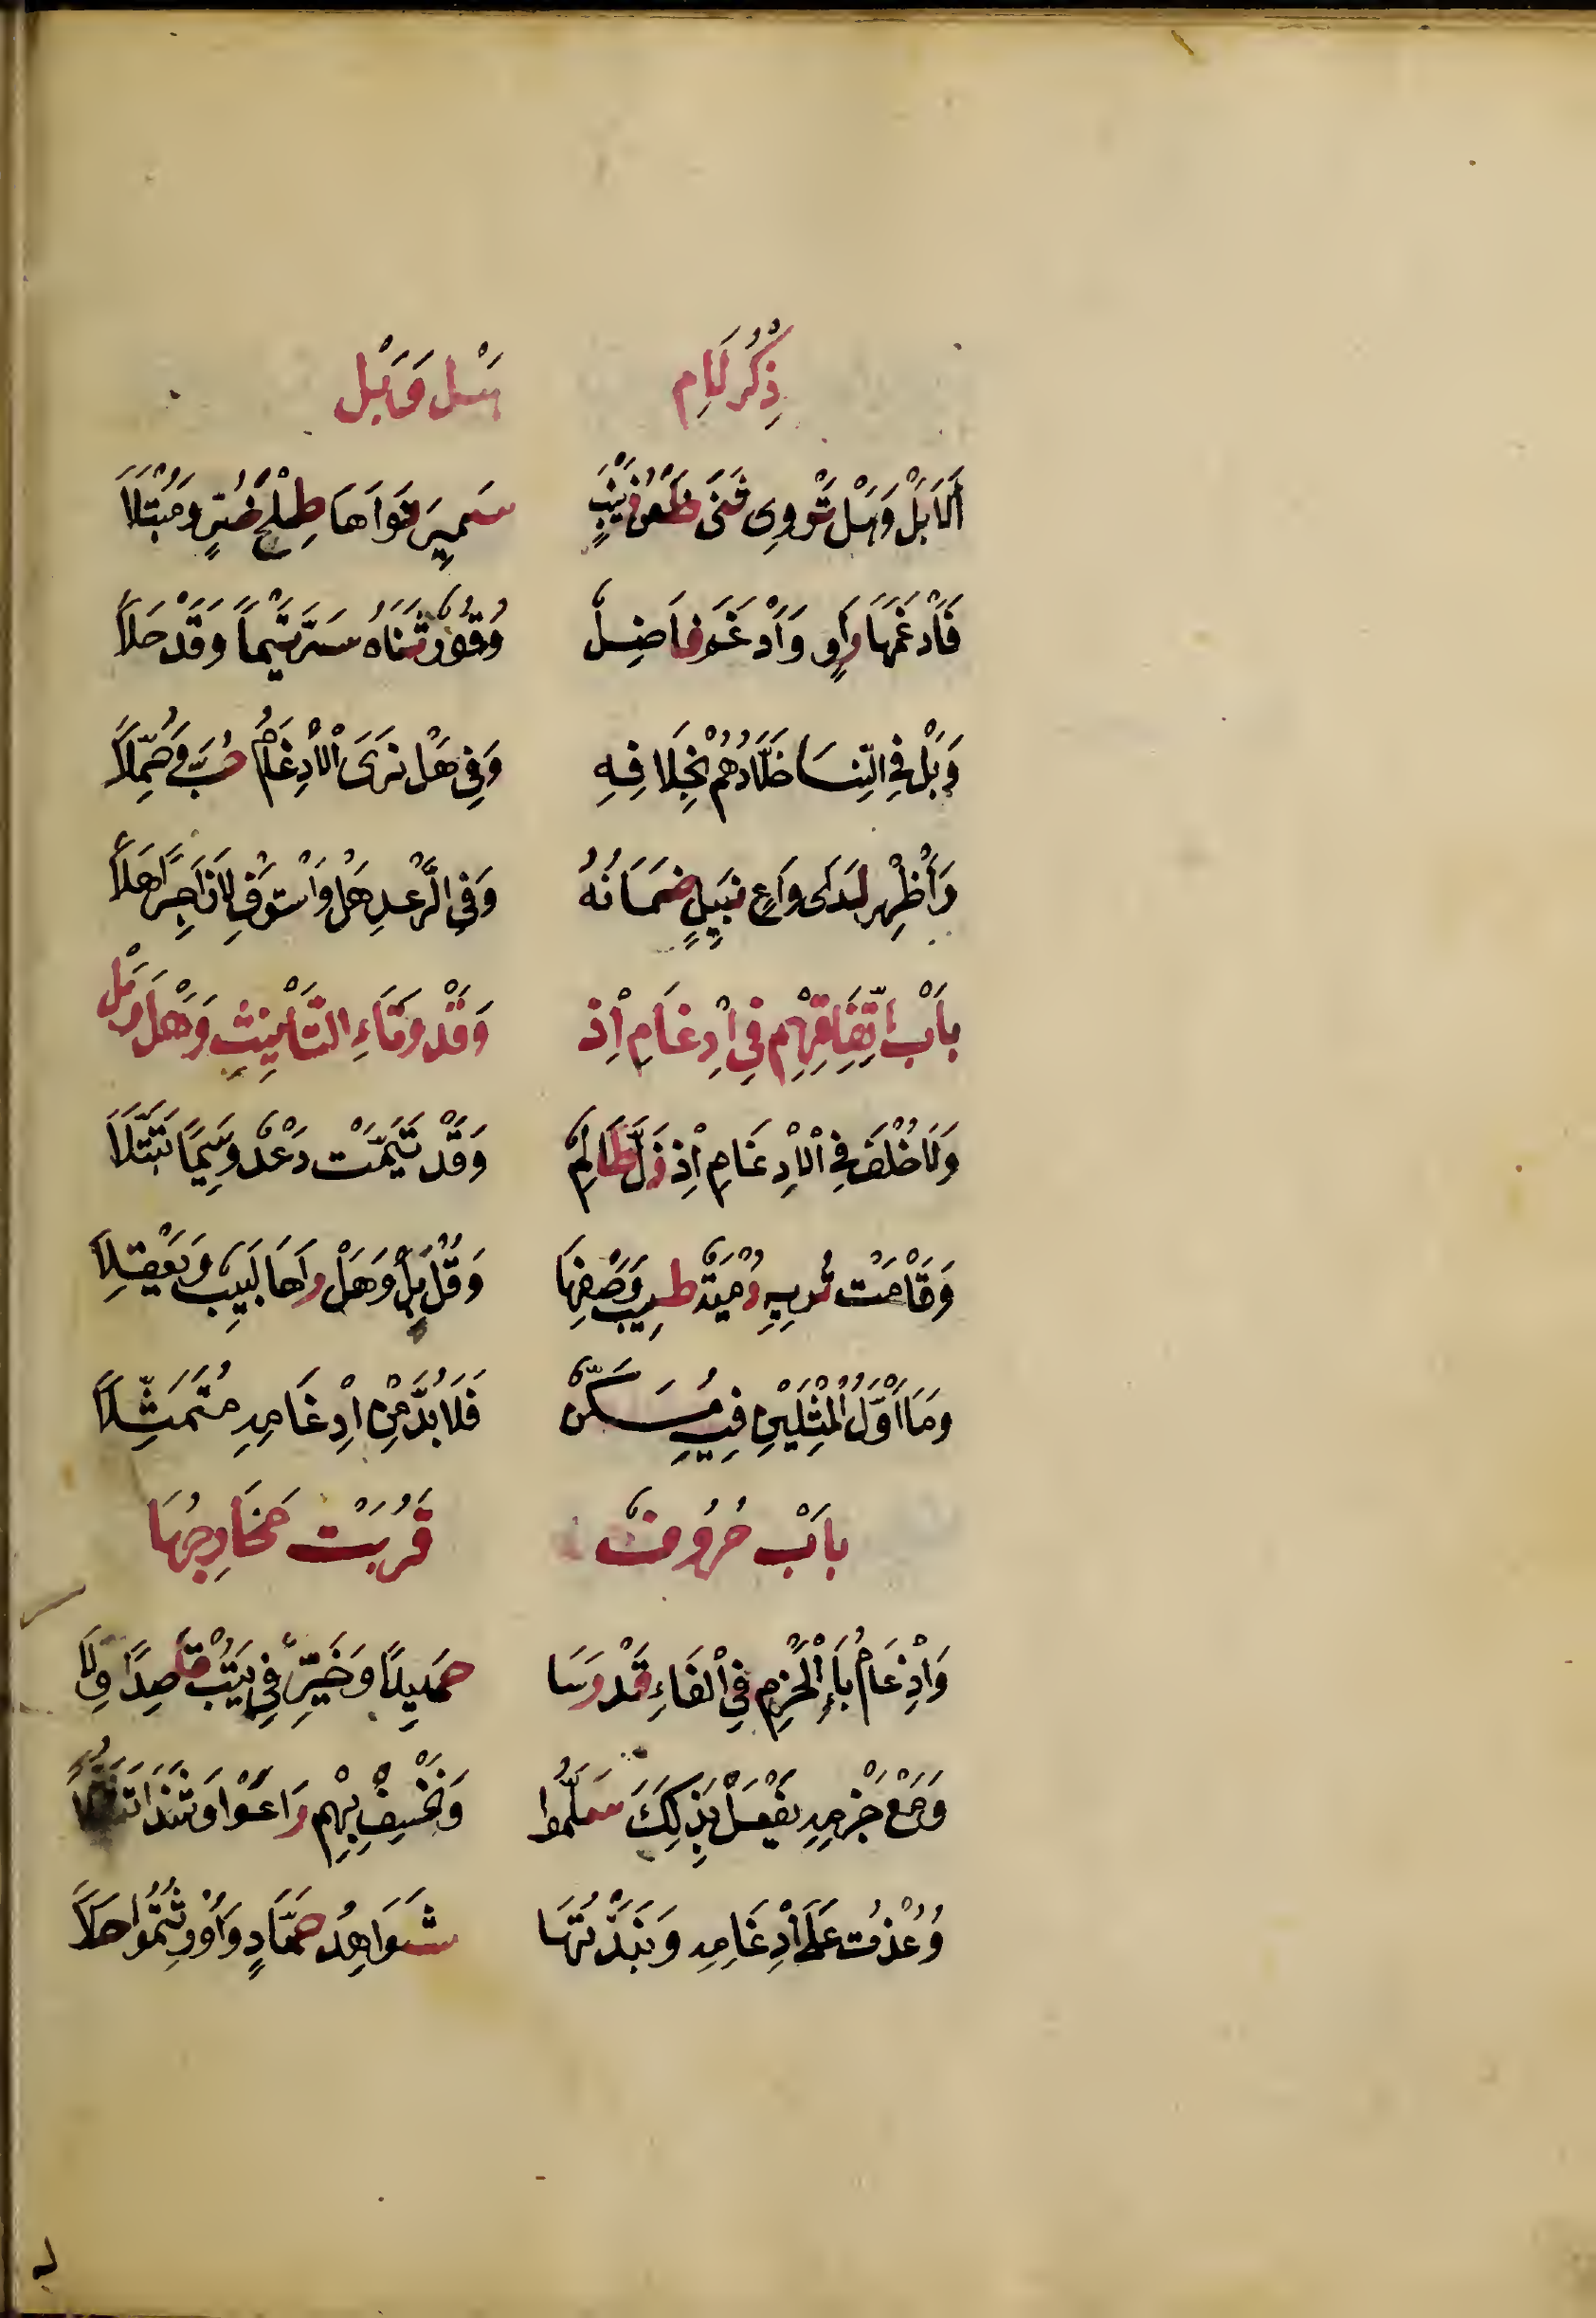 ذِكْرُ لَامِ هَلْ وَبَلْ
أَلَا بَلْ وَهَلْ تَرْوِى ثَنَى ظَعْنِ زَيْنَبٍ سَمِيرَ نَوَاهَا طِلْحَ ضُرٍّ وَمُبْتَلَا
فَأَدْغَمَهَا رَاوٍ وَأَدْغَمَ فَاضِلٌ وَقُورٌ ثَنَاهُ سَرَّ تَيْماً وَقَدْ حَلَا
وَبَلْ فِى النِّسَا خَلَّادُهُمْ بِخِلَافِهِ وَفِى هَلْ تَرَى الْاِدْغَامُ حُبَّ وَحُمِّلَا
وَأَظْهِرْ لَدَى وَاعٍ نَبِيلٍ ضَمَانُهُ وَفِى الرَّعْدِ هَلْ وَاسْتَوْفِ لَا زَاجِراً هَلَا
بَابُ اتِّفَاقِهِمْ فِى اِدْغَامِ اِذْ وَقَدْ وَتَاءِ التَّأْنِيثِ وَهَلْ وَبَلْ
وَلَا خُلْفَ فِى الْاِدْغَامِ اِذْ ذَلَّ ظَالِمٌ وَقَدْ تَيَّمَتْ دَعْدٌ وَسِيمًا تَبَتَّلَا
وَقَامَتْ تُرِيهِ دُمْيَةٌ طِيبَ وَصْفِهَا وَقُلْ بَلْ وَهَلْ رَاهَا لَبِيبٌ وَيَعْقِلَا
وَمَا اَوَّلُ الْمِثْلَيْنِ فِيهِ مُسَكَّنٌ فَلَا بُدَّ مِنْ اِدْغَامِهِ مُتَمَثِّلَا
بَابُ حُرُوفٍ قَرُبَتْ مَخَارِجُهَا
وَاِدْغَامُ بَاءِ الْجَزْمِ فِى الْفَاءِ قَدْ رَسَا حَمِيدًا وَخَيِّرْ فِى يَتُبْ قَاصِدًا وِلَا
وَمَعْ جَزْمِهِ يَفْعَلْ بِذَلِكَ سَلَّمُوا وَنَخْسِفْ بِهِمْ رَاعَوْا وَشَذَّا
وَعُذْتُ عَلَى اِدْغَامِهِ وَنَبَذْتُهَا شَوَاهِدُ حَمَّادٍ وَاُورِثْتُمُوا حَلَا